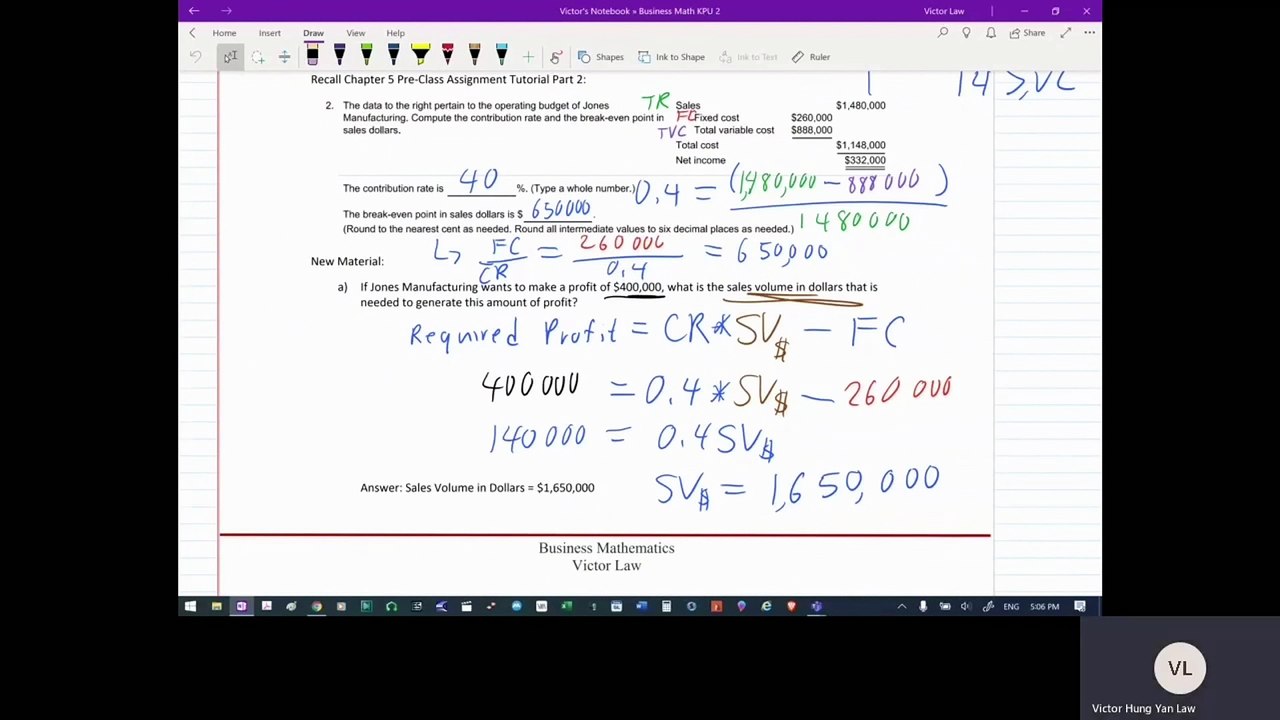 Victor's Notebook » Business Math KPU 2
Victor Law
Home Insert Draw View Help
Share
Shapes Ink to Shape Ink to Text Ruler
Recall Chapter 5 Pre-Class Assignment Tutorial Part 2:
2. The data to the right pertain to the operating budget of Jones
Manufacturing. Compute the contribution rate and the break-even point in
sales dollars.
TR Sales $1,480,000
FC Fixed cost $260,000
TVC Total variable cost $888,000
Total cost $1,148,000
Net income $332,000
The contribution rate is 40 %. (Type a whole number.) 0.4 = (1,480,000 - 888 000) / 1 480 000
The break-even point in sales dollars is $ 650000.
(Round to the nearest cent as needed. Round all intermediate values to six decimal places as needed.)
↳ FC / CR = 260 000 / 0.4 = 650,000
New Material:
a) If Jones Manufacturing wants to make a profit of $400,000, what is the sales volume in dollars that is
needed to generate this amount of profit?
Required Profit = CR * SV$ - FC
400 000 = 0.4 * SV$ - 260 000
140 000 = 0.4 SV$
SV$ = 1,650,000
Answer: Sales Volume in Dollars = $1,650,000
Business Mathematics
Victor Law
ENG 5:06 PM
VL
Victor Hung Yan Law